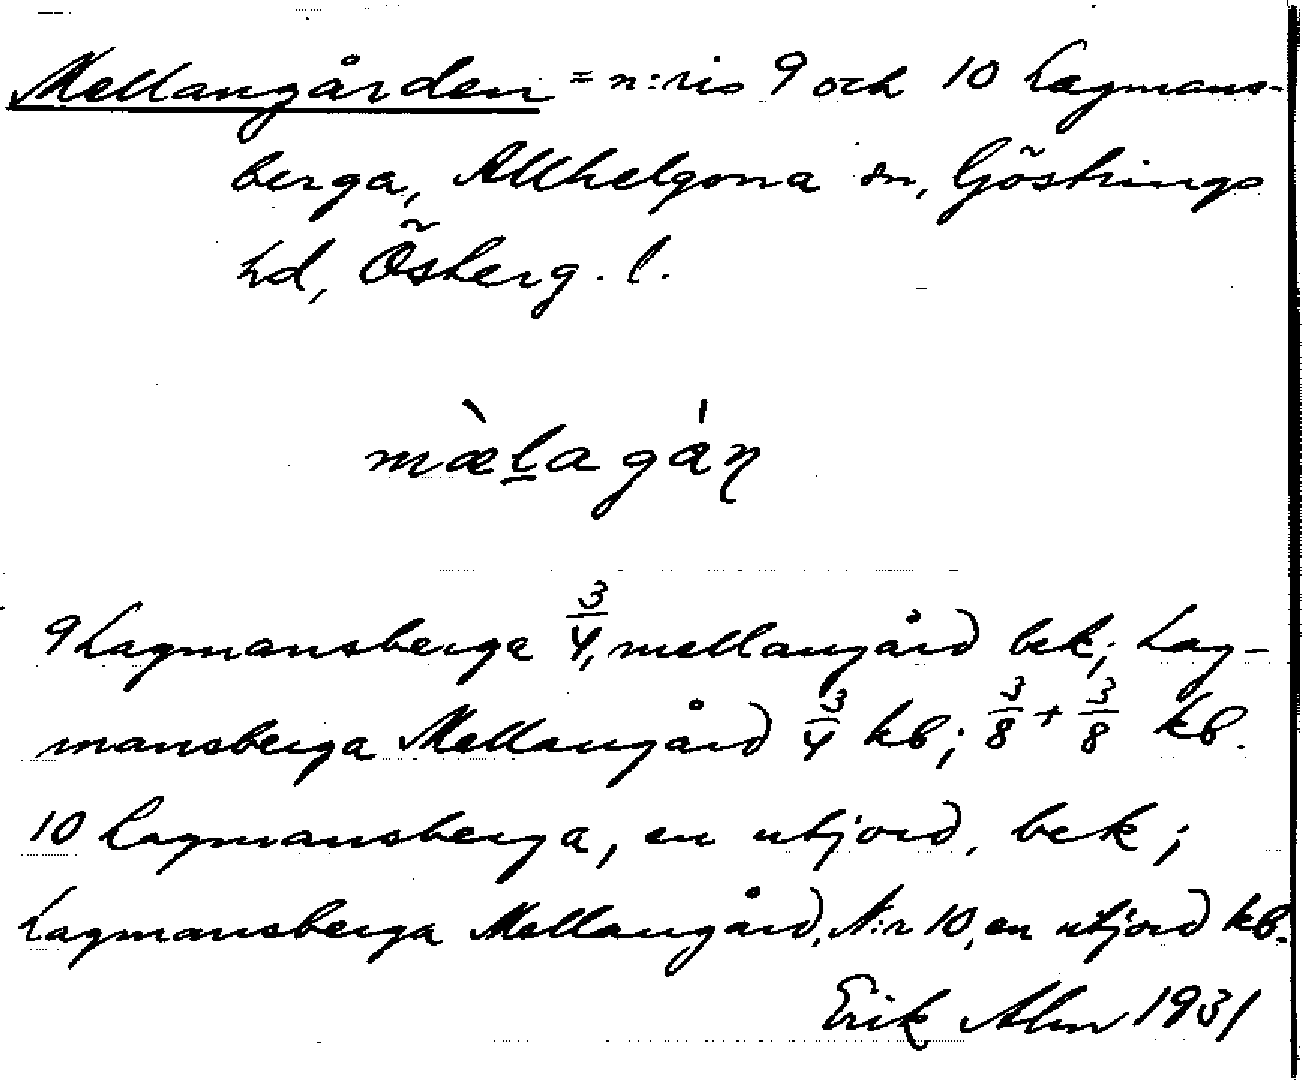 Mellangården = n:ris 9 och 10 Lagmans-
berga, Allhelgona sn, Göstrings
hd, Österg. l.
mæ̀l̲agáɳ
9 Lagmansberga 3/4, mellangård bek; Lag-
mansberga Mellangård 3/4 kb; 3/8 + 3/8 kb.
10 Lagmansberga, en utjord, bek;
Lagmansberga Mellangård, N:r 10, en utjord kb.
Erik Alm 1931